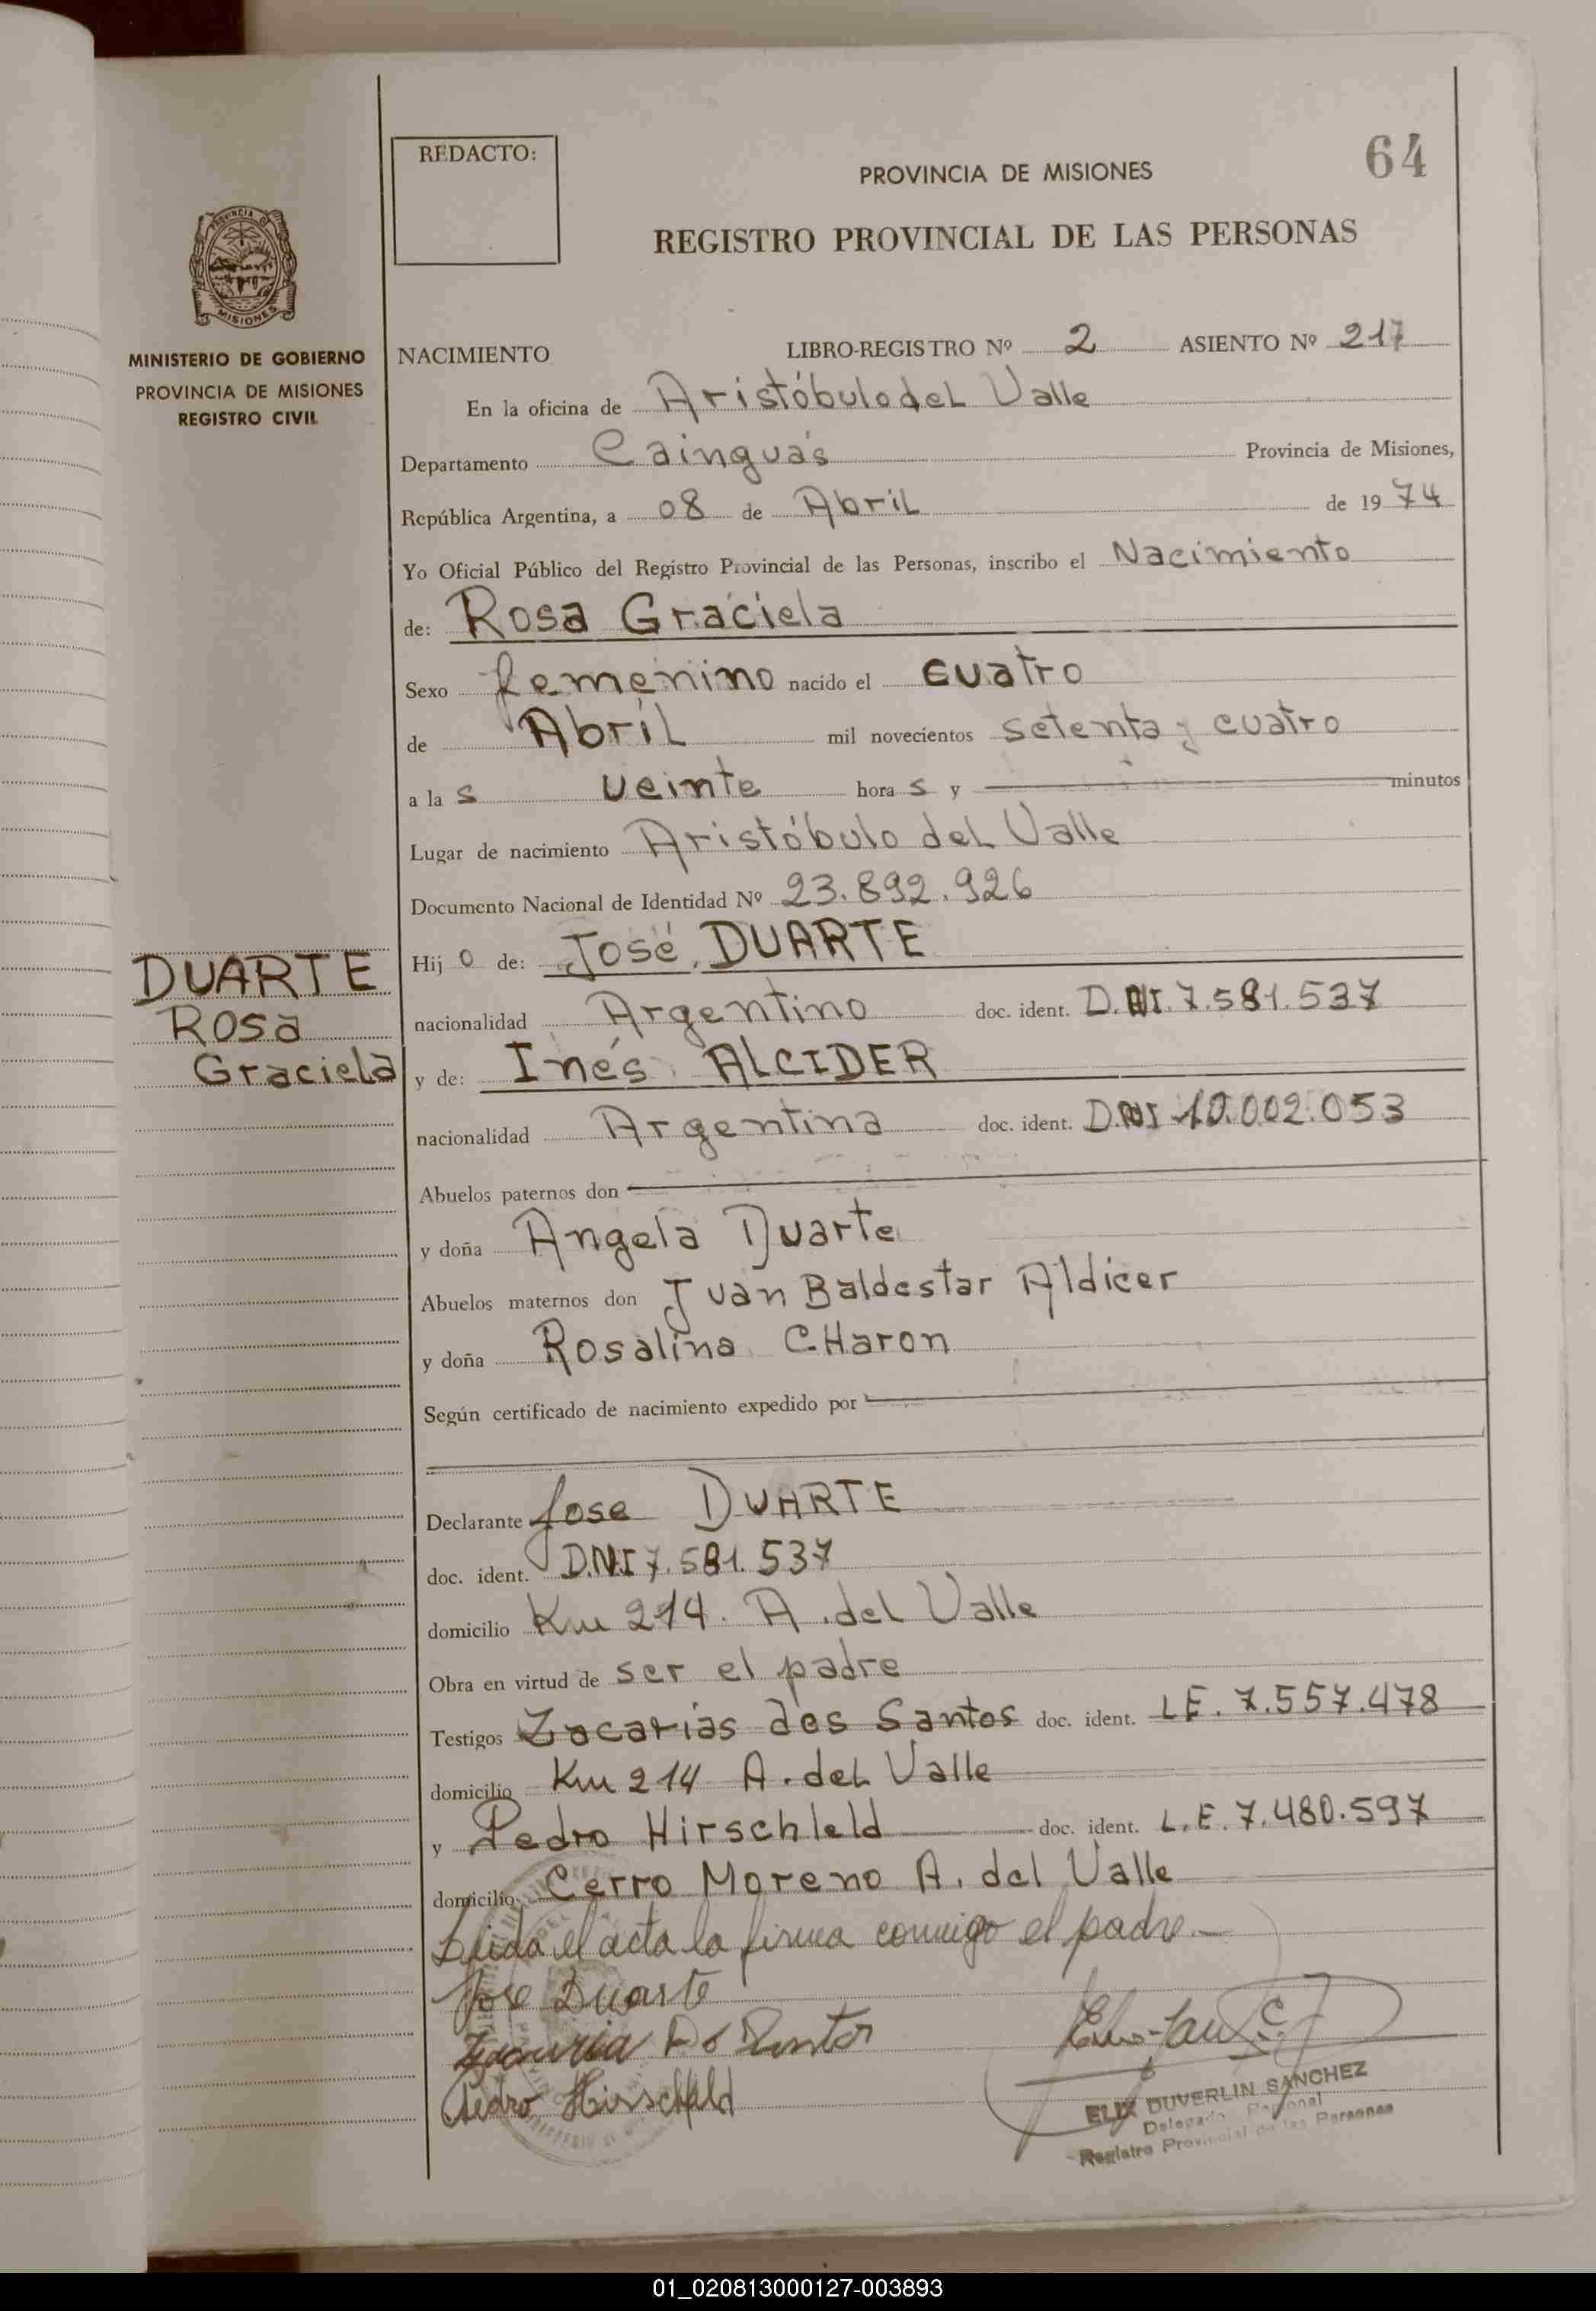 REDACTO:
64
PROVINCIA DE MISIONES
REGISTRO PROVINCIAL DE LAS PERSONAS
PROVINCIA DE
MISIONES
MINISTERIO DE GOBIERNO
PROVINCIA DE MISIONES
REGISTRO CIVIL
NACIMIENTO LIBRO-REGISTRO Nº 2 ASIENTO Nº 217
En la oficina de Aristóbulo del Valle
Departamento Cainguás Provincia de Misiones,
República Argentina, a 08 de Abril de 19 74
Yo Oficial Público del Registro Provincial de las Personas, inscribo el Nacimiento
de: Rosa Graciela
Sexo femenino nacido el cuatro
de Abril mil novecientos setenta y cuatro
a la s veinte hora s y minutos
Lugar de nacimiento Aristóbulo del Valle
Documento Nacional de Identidad Nº 23.892.926
DUARTE
Rosa
Graciela
Hij o de: José DUARTE
nacionalidad Argentino doc. ident. D.NI.7.581.537
y de: Inés ALCIDER
nacionalidad Argentina doc. ident. DNI 10.002.053
Abuelos paternos don
y doña Angela Duarte
Abuelos maternos don Juan Baldestar Aldicer
y doña Rosalina CHaron
Según certificado de nacimiento expedido por
Declarante Jose DUARTE
doc. ident. D.N.I 7.581.537
domicilio Km 214. A. del Valle
Obra en virtud de ser el padre
Testigos Zacarias dos Santos doc. ident. LE. 7.557.478
domicilio Km 214 A. del Valle
y Pedro Hirschleld doc. ident. L.E. 7.480.597
domicilio Cerro Moreno A. del Valle
Leida el acta la firma conmigo el padre.-
Jose Duarte
Pedro Hirschfeld
ELIX DUVERLIN SANCHEZ
Registro Provincial de las Personas
01_020813000127-003893